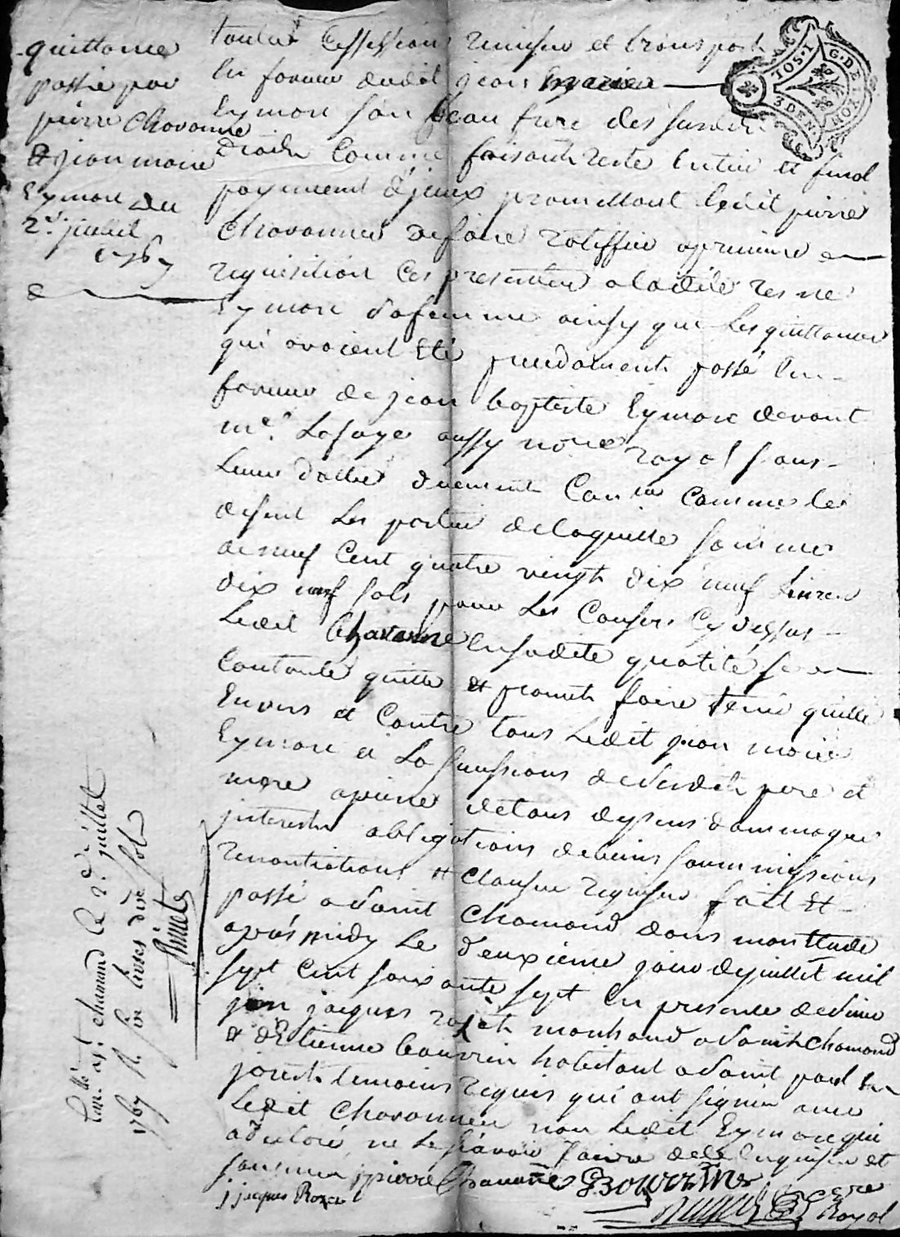 quittance
passée par
pierre Chavanne
et jean marie
Eymare du
2e juillet
1767
toutes Cession remise et transport
en faveur dudit jean marie
Eymare son beau frere des susdits
droits Comme faisant reste Entier et final
payement d'jceux promettant ledit pierre
Chavanne de faire ratiffier apremiere
requisition Ces presentes a ladite
Eymare sa femme ainsy que les quittances
qui avoient été precedament passé En
faveur de jean baptiste Eymare devant
me. Lafaye aussy nore royal sous
Leurs dattes duement Comme les
disent les parties de laquelle somme
de neuf Cent quatre vingt dix neuf livres
dix neuf sols pour les Causes Cy dessus
Ledit Chavanne En sadite qualité se
Contente quitte et promet faire tenir quitte
Envers et Contre tous Ledit jean marie
Eymare et la succession desdits pere et
mere apeine de tous depens dommages
jnterests obligations de biens soummissions
renontiations et Clauses requises fait et
passé a Saint Chamond dans mon Etude
aprés midy le deuxieme jour de juillet mil
sept Cent soixante sept En presence de sieur
jean jacques rozet marchand a Saint Chamond
et d'Etienne bourrin habitant a Saint paul En
jarest temoins requis qui ont signés avec
Ledit Chavanne non Ledit Eymare qui
a declaré ne le sçavoir faire de ce Enquis et
sommé pierre Chavanne E Bourrin
j jacques Rozet
nore Royal
St chamond le 2e juillet
1767 livres dix sols
G. DE LYON
3 DEN.